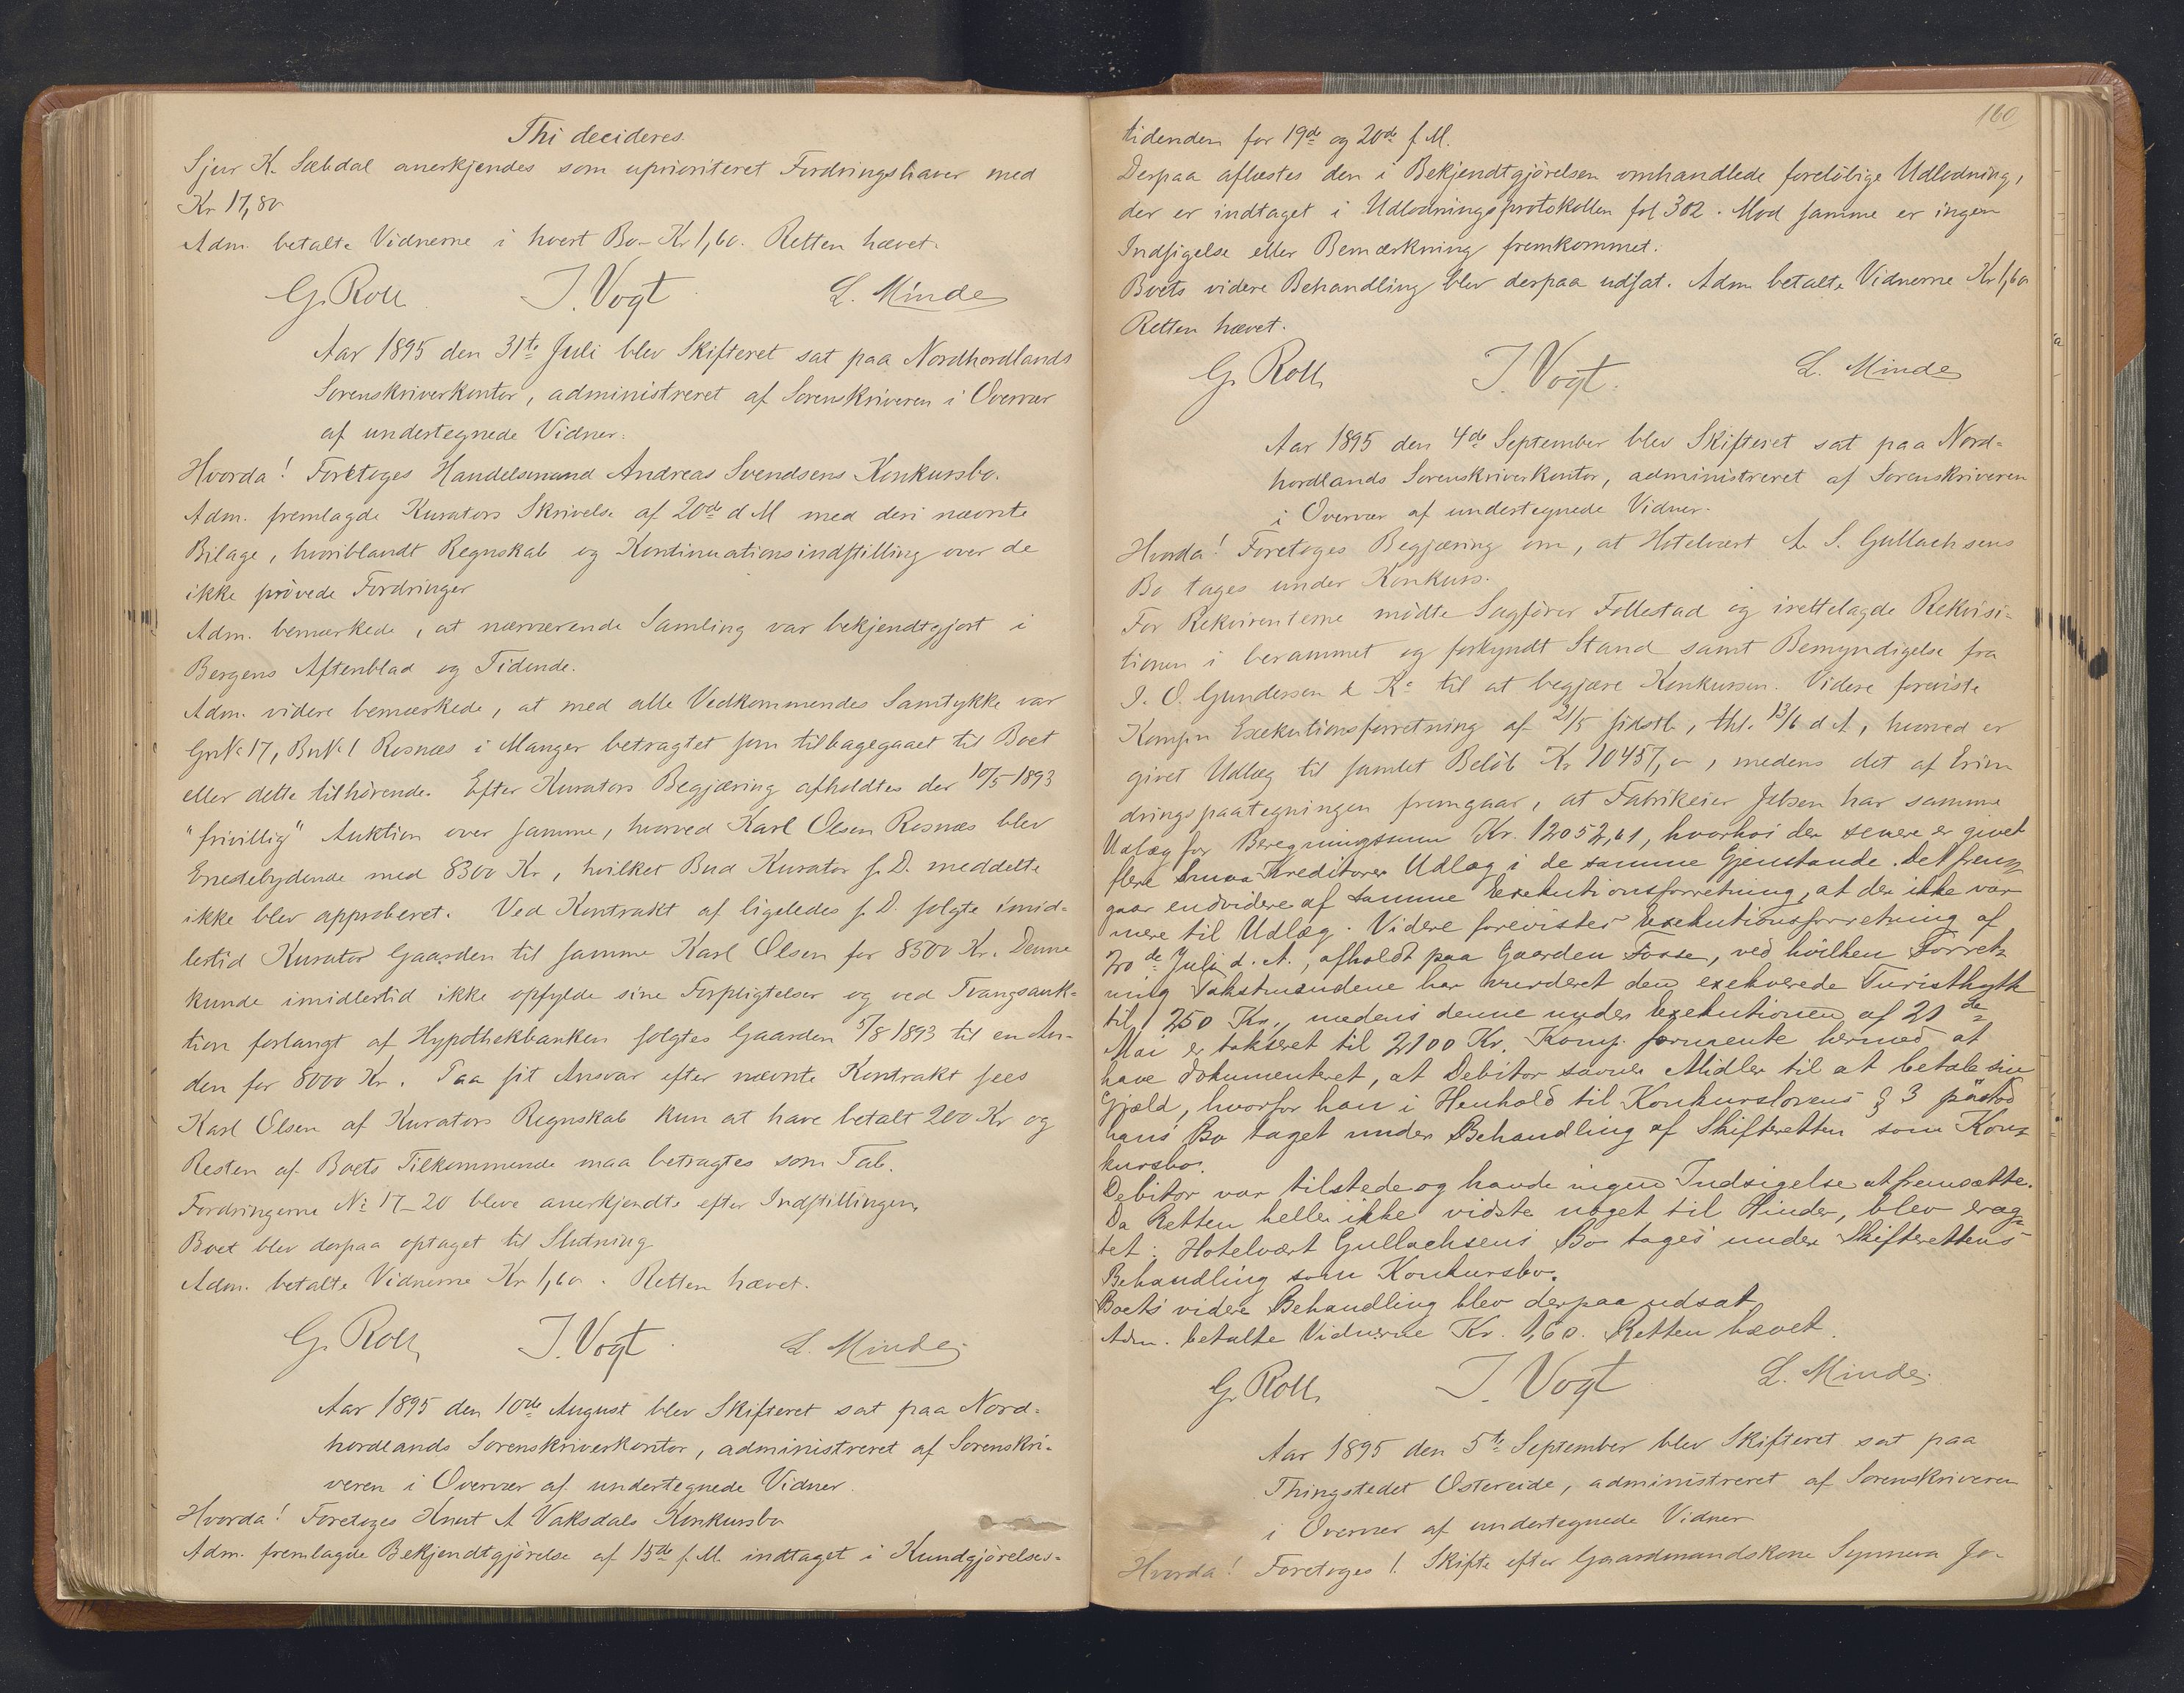 Thi decideres.
Sjur K. Sæbdal anerkjendes som uprioriteret Fordringshaver med
Kr 17,80
Adm. betalte Vidnerne i hvert Bo - Kr 1,60. Retten hævet.
G. Roll J. Vogt L. Minde
Aar 1895 den 31te Juli blev Skifteret sat paa Nordhordlands
Sorenskriverkontor, administreret af Sorenskriveren i Overvær
af undertegnede Vidner.
Hvorda! Foretoges Handelsmand Andreas Svendsens Konkursbo.
Adm. fremlagde Kurators Skrivelse af 20de d M med deri nævnte
Bilage, hvoriblandt Regnskab og Kontinuationsindstilling over de
ikke prövede Fordringer
Adm. bemærkede, at nærværende Samling var bekjendtgjort i
Bergens Aftenblad og Tidende.
Adm. videre bemærkede, at med alle Vedkommendes Samtykke var
GrN. 17, BrN. 1 Rosnæs i Manger betragtet som tilbagegaaet til Boet
eller dette tilhörende. Efter Kurators Begjæring afholdtes der 10/5 1893
"frivillig" Auktion over samme, hvorved Karl Olsen Rosnæs blev
Enestebydende med 8300 Kr, hvilket Bud Kurator s. D. meddelte
ikke blev approberet. Ved Kontrakt af ligeledes s. D. solgte imid-
lertid Kurator Gaarden til samme Karl Olsen for 8500 Kr. Denne
kunde imidlertid ikke opfylde sine Forpligtelser og ved Tvangsauk-
tion forlangt af Hypothekbanken solgtes Gaarden 5/8 1893 til en An-
den for 8000 Kr. Paa sit Ansvar efter nævnte Kontrakt sees
Karl Olsen af Kurators Regnskab kun at have betalt 200 Kr og
Resten af Boets Tilkommende maa betragtes som Tab.
Fordringerne No 17-20 bleve anerkjendte efter Indstillingen,
Boet blev derpaa optaget til Slutning
Adm. betalte Vidnerne Kr 1,60. Retten hævet.
G. Roll J. Vogt L. Minde
Aar 1895 den 10de August blev Skifteret sat paa Nord-
hordlands Sorenskriverkontor, administreret af Sorenskri-
veren i Overvær af undertegnede Vidner.
Hvorda! Foretoges Knut A Vaksdals Konkursbo
Adm. fremlagde Bekjendtgjörelse af 15de f. M. indtaget i Kundgjörelses-
160
tidenden for 19de og 20de f M.
Derpaa aflæstes den i Bekjendtgjörelsen omhandlede forelöbige Udlodning,
der er indtaget i Udlodningsprotokollen fol 302. Mod samme er ingen
Indsigelse eller Bemærkning fremkommet.
Boets videre Behandling blev derpaa udsat. Adm. betalte Vidnerne Kr 1,60
Retten hævet.
G. Roll J. Vogt. L. Minde
Aar 1895 den 4de September blev Skifteret sat paa Nord-
hordlands Sorenskriverkontor, administreret af Sorenskriveren
i Overvær af undertegnede Vidner.
Hvorda! Foretoges Begjæring om, at Hotelvært A. S. Gullachsens
Bo tages under Konkurs.
For Rekvirenterne mödte Sagförer Follestad og irettelagde Rekvisi-
tionen i berammet og forkyndt Stand samt Bemyndigelse fra
J. O. Gundersen & Ko til at begjære Konkursen. Videre foreviste
Komp.n Exekutionsforretning af 21/5 sidstl, thl. 13/6 d A, hvorved er
givet Udlæg til samlet Belöb Kr 10457,00, medens det af Erin
dringspaategningen fremgaar, at Fabrikeier Jebsen har samme
Udlæg for Beregningssum Kr. 12052,61, hvorhos der senere er givet
flere smaa Kreditorer Udlæg i de samme Gjenstande. Det frem-
gaar endvidere af samme Exekutionsforretning, at der ikke var
mere til Udlæg. Videre forevistes Exekutionsforretning af
20de Juli d. A., afholdt paa Gaarden Fosse, ved hvilken Forret-
ning Takstmændene har vurderet den exekverede Turisthytte
til 250 Kr., medens denne under Exekutionen af 21de
Mai er takseret til 2100 Kr. Komp. formente hermed at
have dokumenteret, at Debitor savner Midler til at betale sin
Gjæld, hvorfor han i Henhold til Konkurslovens § 3 påstod
hans Bo taget under Behandling af Skifteretten som Kon-
kursbo.
Debitor var tilstede og havde ingen Indsigelse at fremsætte.
Da Retten heller ikke vidste noget til Hinder, blev erag-
tet: Hotelvært Gullachsens Bo tages under Skifterettens
Behandling som Konkursbo.
Boets videre Behandling blev derpaa udsat.
Adm. betalte Vidnerne Kr. 1,60. Retten hævet.
G. Roll J. Vogt L. Minde.
Aar 1895 den 5te September blev Skifteret sat paa
Thingstedet Ostereide, administreret af Sorenskriveren
i Overvær af undertegnede Vidner
Hvorda! Foretoges 1. Skifte efter Gaardmandskone Synneva Jo-